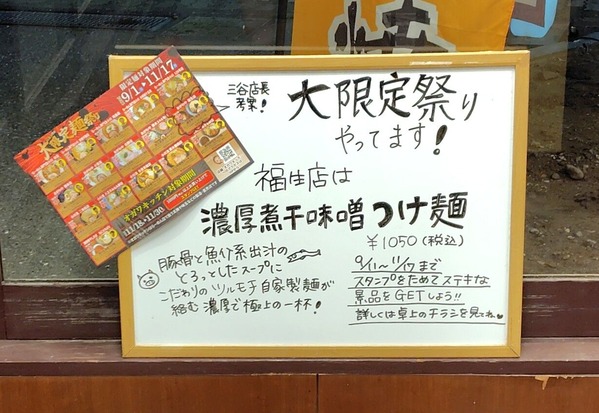 三谷店長
考案!
大限定祭り
やってます!
福生店は
濃厚煮干味噌つけ麺
¥1050(税込)
豚骨と魚介系出汁の
とろっとしたスープに
こだわりのツルモチ自家製麺が
絡む濃厚で極上の一杯!
9/1~11/17まで
スタンプをためてステキな
景品をGETしよう!!
詳しくは卓上のチラシを見てね♥
限定麺対象期間
9/1 11/17
大限定麺祭
オガワキッチン対象期間
11/18 11/30